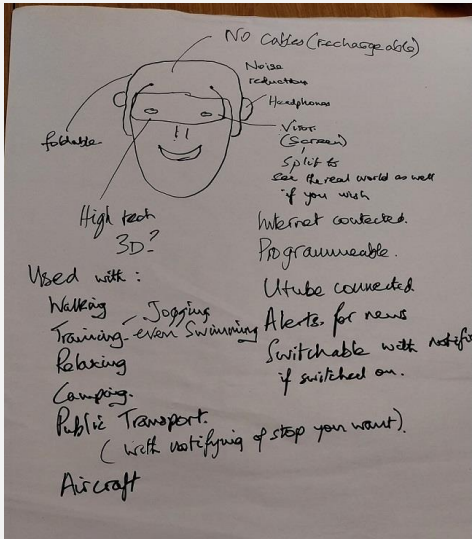 No Cables (rechargeable)
Noise
reduction
Headphones
foldable
Visor
(screen)
Split to
see the real world as well
if you wish
High tech
3D?
Internet contected.
Programmeable.
Utube connected
Alerts. for news
Switchable with notifi
if switched on.
Used with :
Walking
Jogging
Training - even Swimming
Relaxing
Camping.
Public Transport.
(with notifying of stop you want).
Aircraft